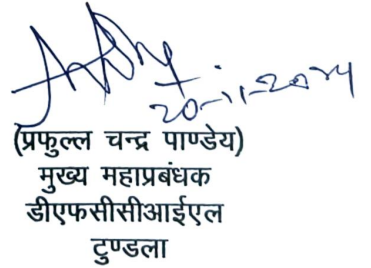 20-11-2024
(प्रफुल्ल चन्द्र पाण्डेय)
मुख्य महाप्रबंधक
डीएफसीसीआईएल
टुण्डला